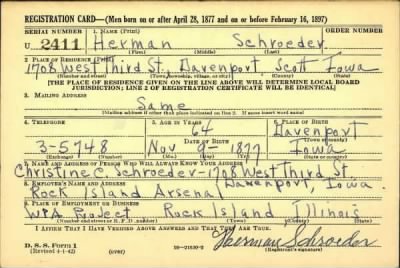 REGISTRATION CARD—(Men born on or after April 28, 1877 and on or before February 16, 1897)
SERIAL NUMBER 1. NAME (Print) ORDER NUMBER
U 2411 Herman Schroeder
(First) (Middle) (Last)
2. PLACE OF RESIDENCE (Print)
1708 West Third St., Davenport, Scott Iowa
(Number and street) (Town, township, village, or city) (County) (State)
[THE PLACE OF RESIDENCE GIVEN ON THE LINE ABOVE WILL DETERMINE LOCAL BOARD
JURISDICTION; LINE 2 OF REGISTRATION CERTIFICATE WILL BE IDENTICAL]
3. MAILING ADDRESS
Same
[Mailing address if other than place indicated on line 2. If same insert word same]
4. TELEPHONE 5. AGE IN YEARS 6. PLACE OF BIRTH
64 Davenport
DATE OF BIRTH
3-5748 Nov 9-1877 Iowa
7. NAME AND ADDRESS OF PERSON WHO WILL ALWAYS KNOW YOUR ADDRESS
Christine C. Schroeder-1708 West Third St.
8. EMPLOYER'S NAME AND ADDRESS Davenport, Iowa.
Rock Island Arsenal
9. PLACE OF EMPLOYMENT OR BUSINESS
WPA Project Rock Island, Illinois
(Number and street or R. F. D. number) (Town) (County) (State)
I AFFIRM THAT I HAVE VERIFIED ABOVE ANSWERS AND THAT THEY ARE TRUE.
Herman Schroeder
D. S. S. Form 1
(Revised 4-1-42) (over) 16—21630-2 (Registrant's signature)